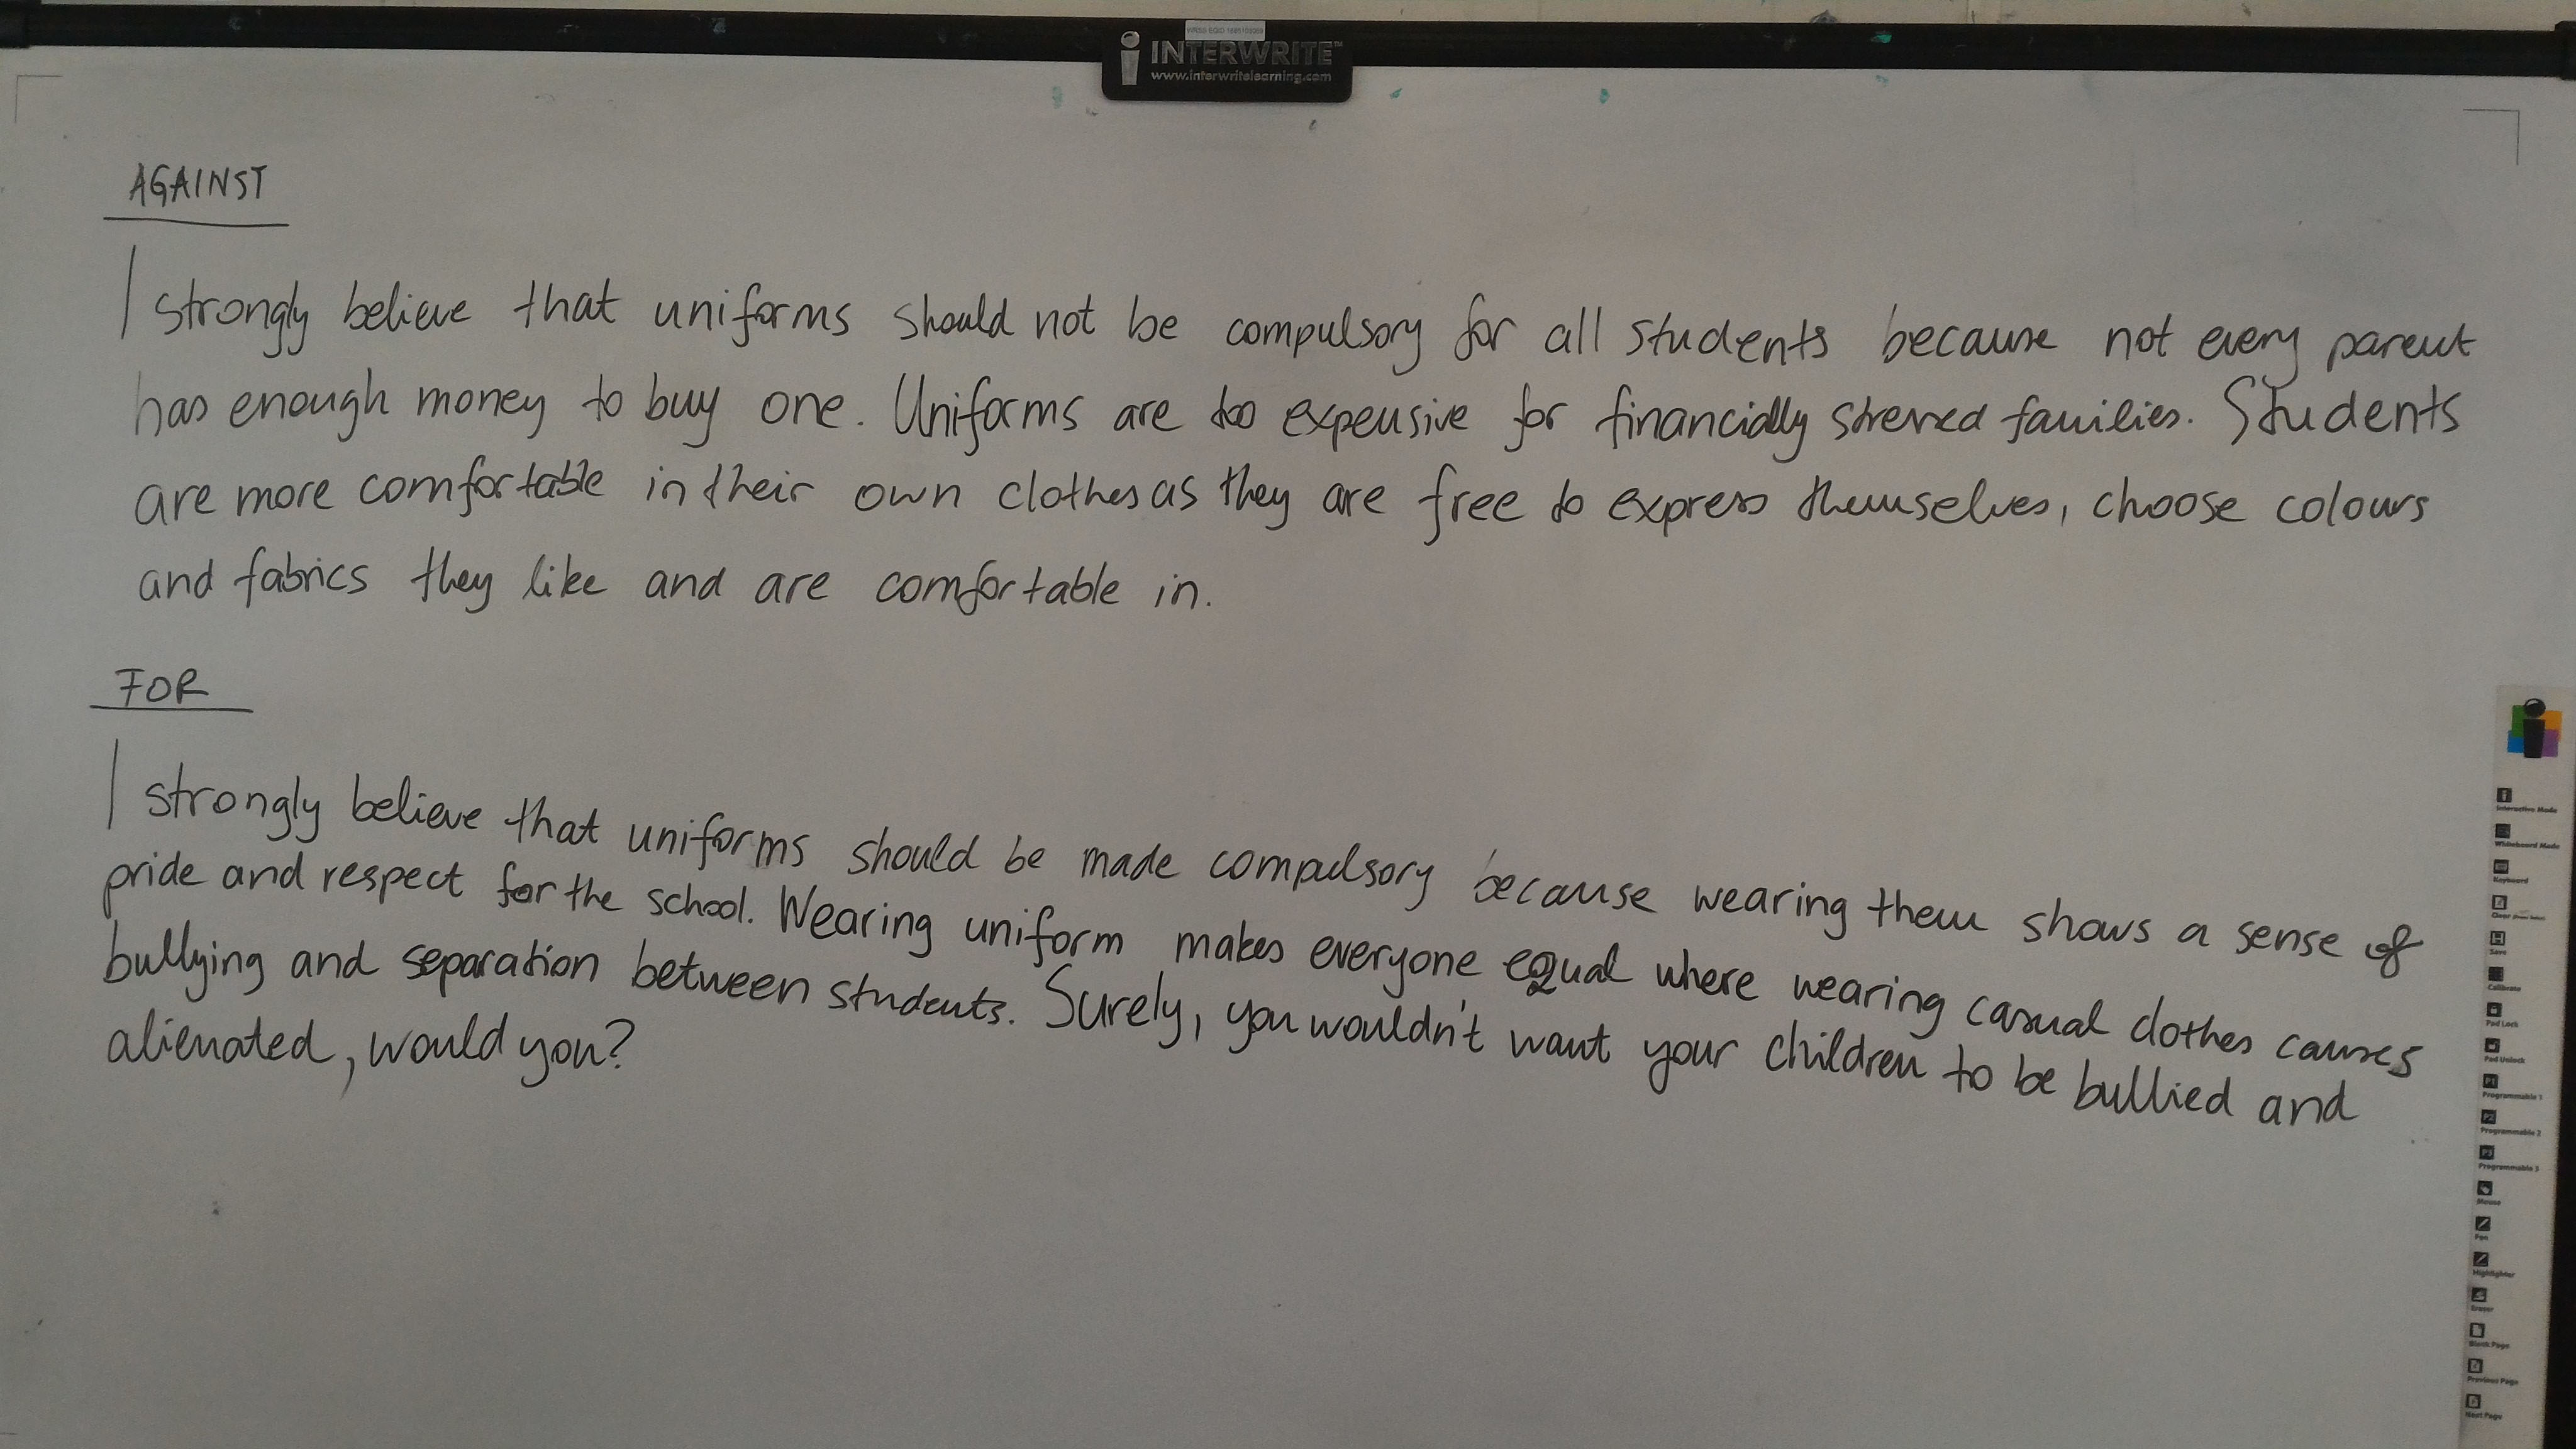 WRSS EQID 1685109069
INTERWRITE™
www.interwritelearning.com
AGAINST
I strongly believe that uniforms should not be compulsory for all students because not every parent
has enough money to buy one. Uniforms are too expensive for financially stressed families. Students
are more comfortable in their own clothes as they are free to express themselves, choose colours
and fabrics they like and are comfortable in.
FOR
I strongly believe that uniforms should be made compulsory because wearing them shows a sense of
pride and respect for the school. Wearing uniform makes everyone equal where wearing casual clothes causes
bullying and separation between students. Surely, you wouldn't want your children to be bullied and
alienated, would you?
Interactive Mode
Whiteboard Mode
Keyboard
Clear
Save
Calibrate
Pad Lock
Pad Unlock
Programmable 1
Programmable 2
Programmable 3
Mouse
Pen
Highlighter
Eraser
Blank Page
Previous Page
Next Page